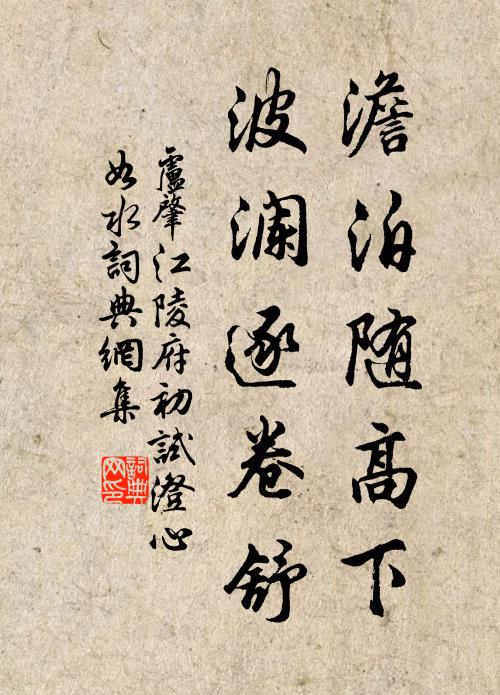 澹泊随高下
波澜逐卷舒
盧肇江陵府初試澄心
如水詞典網集
詞典网印